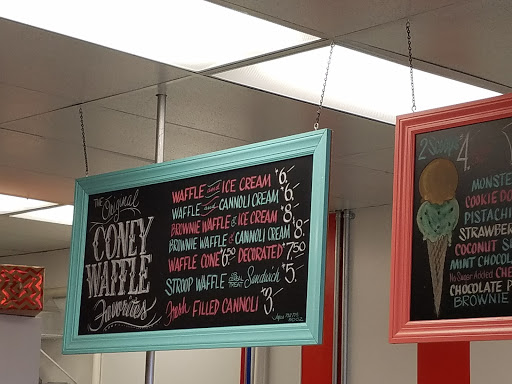 THE Original
CONEY
WAFFLE
Favorites
WAFFLE and ICE CREAM $6.-
WAFFLE and CANNOLI CREAM $6.-
BROWNIE WAFFLE & ICE CREAM $8.-
BROWNIE WAFFLE & CANNOLI CREAM $8.-
WAFFLE CONE $6.50 DECORATED $7.50
STROOP WAFFLE CEREAL TREAT Sandwich $5.-
Fresh FILLED CANNOLI $3.-
2 Scoops $4.
MONSTE
COOKIE DO
PISTACHI
STRAWBER
COCONUT S
MINT CHOCOL
No Sugar Added CHE
CHOCOLATE P
BROWNIE